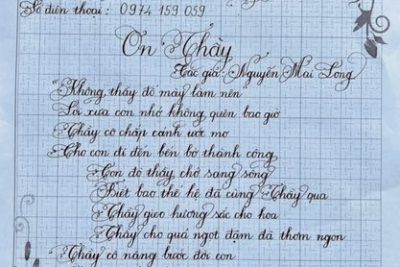 Số điện thoại : 0974 159 059
Ơn Thầy
Tác giả : Nguyễn Mai Long
"Không thầy đố mày làm nên"
Lời xưa con nhớ không quên bao giờ
Thầy cô chắp cánh ước mơ
Cho con đi đến bến bờ thành công
Con đò thầy chở sang sông
Biết bao thế hệ đã cùng Thầy qua
Thầy gieo hương sắc cho hoa
Thầy cho quả ngọt đậm đà thơm ngon
Thầy cô nâng bước đời con